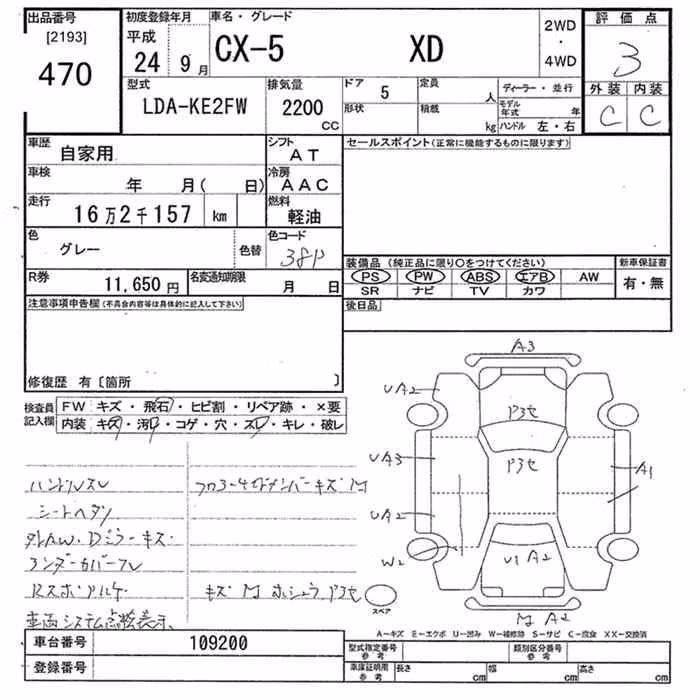 出品番号
[2193]
470
初度登録年月
平成
24 9月
車名・グレード
CX-5 XD
2WD
・
4WD
評価点
3
外装 内装
C C
型式
LDA-KE2FW
排気量
2200
CC
ドア 5
形状
定員
人
積載
kg
ディーラー・並行
モデル年式 年
ハンドル 左・右
車歴
自家用
シフト
AT
車検
年 月( 日)
冷房
AAC
走行
16万2千157 km
燃料
軽油
色
グレー
色替
色コード
38P
R券 11,650円
名変通知期限
月 日
セールスポイント(正常に機能するものに限ります)
装備品(純正品に限り○をつけてください)
PS PW ABS エアB AW
SR ナビ TV カワ
新車保証書
有・無
後日品
注意事項申告欄(不具合内容等は具体的に記入して下さい)
修復歴 有〔箇所 〕
検査員
記入欄
FW キズ・飛石・ヒビ割・リペア跡・×要
内装 キズ・汚れ・コゲ・穴・スレ・キレ・破レ
ハンドルスレ
シートヘタリ
外AW・Dミラーキズ・
アンダーカバーフレ
車両システム点検表示、
A3
UA2
P3セ
P3セ
UA3
A1
UA2
W2
U1 A2
A2
スペア
A-キズ E-エクボ U-凹み W-補修跡 S-サビ C-腐食 XX-交換済
車台番号 109200
登録番号
型式指定番号
参考
類別区分番号
参考
車庫証明用
参考
長さ cm 幅 cm 高さ cm